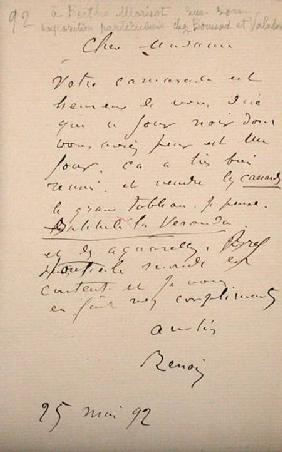 92 à Berthe Morisot sur son
exposition particulière chez Boussod et Valadon
Cher Madame
Votre camarade est
heureux de vous dire
que ce jour noir dont
vous aviez peur est un
jour. ça a très bien
réussi. et vendu les canards
le grand tableau je pense.
intitulé la Veranda
et des aquarelles. Bref
tout le monde est
content et je vous
en fais mes compliments
amitiés
Renoir
25 mai 92